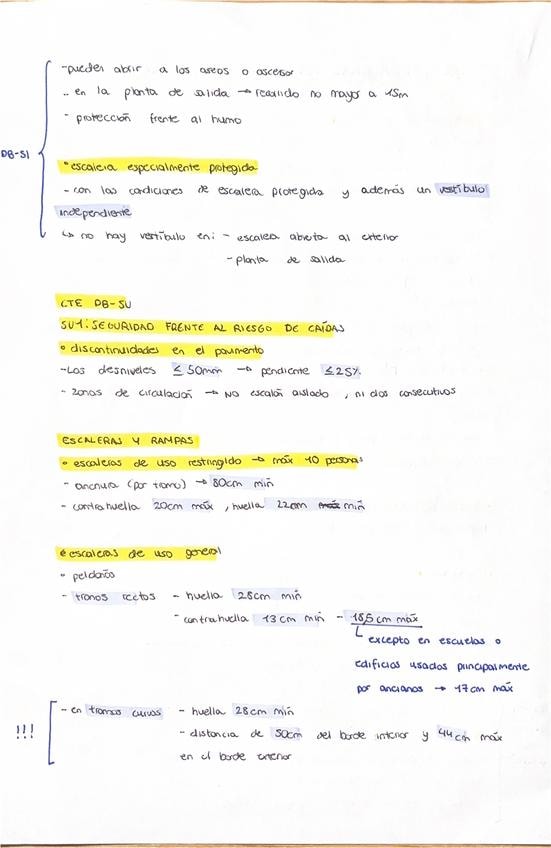 -pueden abrir a los aseos o ascensor
- en la planta de salida → recorrido no mayor a 15m
- protección frente al humo
DB-SI
• escalera especialmente protegida
- con las condiciones de escalera protegida y además un vestíbulo
independiente
↳ no hay vestíbulo en: - escalera abierta al exterior
- planta de salida
CTE DB-SU
SU1: SEGURIDAD FRENTE AL RIESGO DE CAÍDAS
• discontinuidades en el pavimento
- Los desniveles ≤ 50mm → pendiente ≤ 25%
- zonas de circulación → NO escalón aislado, ni dos consecutivos
ESCALERAS Y RAMPAS
• escaleras de uso restringido → máx 10 personas
- anchura (por tramo) → 80cm min
- contrahuella 20cm máx, huella 22cm min
• escaleras de uso general
• peldaños
- tramos rectos - huella 28cm min
- contrahuella 13cm min - 18,5 cm máx
↳ excepto en escuelas o
edificios usados principalmente
por ancianos → 17cm máx
!!! - en tramos curvos - huella 28cm min
- distancia de 50cm del borde interior y 44cm máx
en el borde exterior